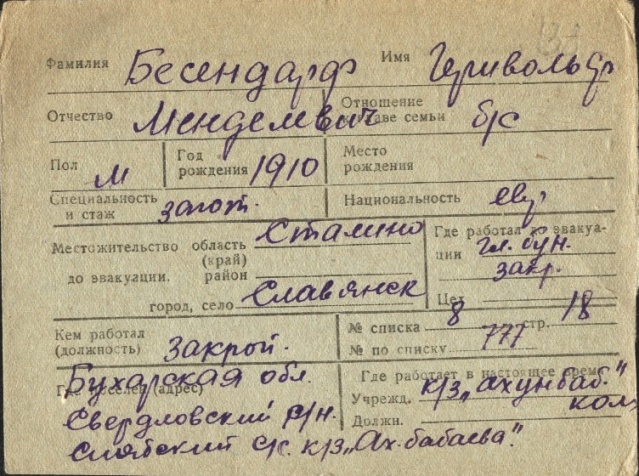 Фамилия Бесендарф Имя
Отчество Менделевич Отношение к главе семьи б/с
Пол М Год рождения 1910 Место рождения
Специальность и стаж загот. Национальность евр
Местожительство область (край) Сталино Где работал до эвакуации
до эвакуации. район закр.
город, село Славянск Цех
Кем работал (должность) закрой. № списка 8 стр. 18
№ по списку 777
Бухарская обл. Где работает в настоящее время
Где поселен (адрес) Учрежд. к/з „Ахунбаб."
Свердловский р/н. Должн. кол
с/с. к/з „Ах-бабаева".